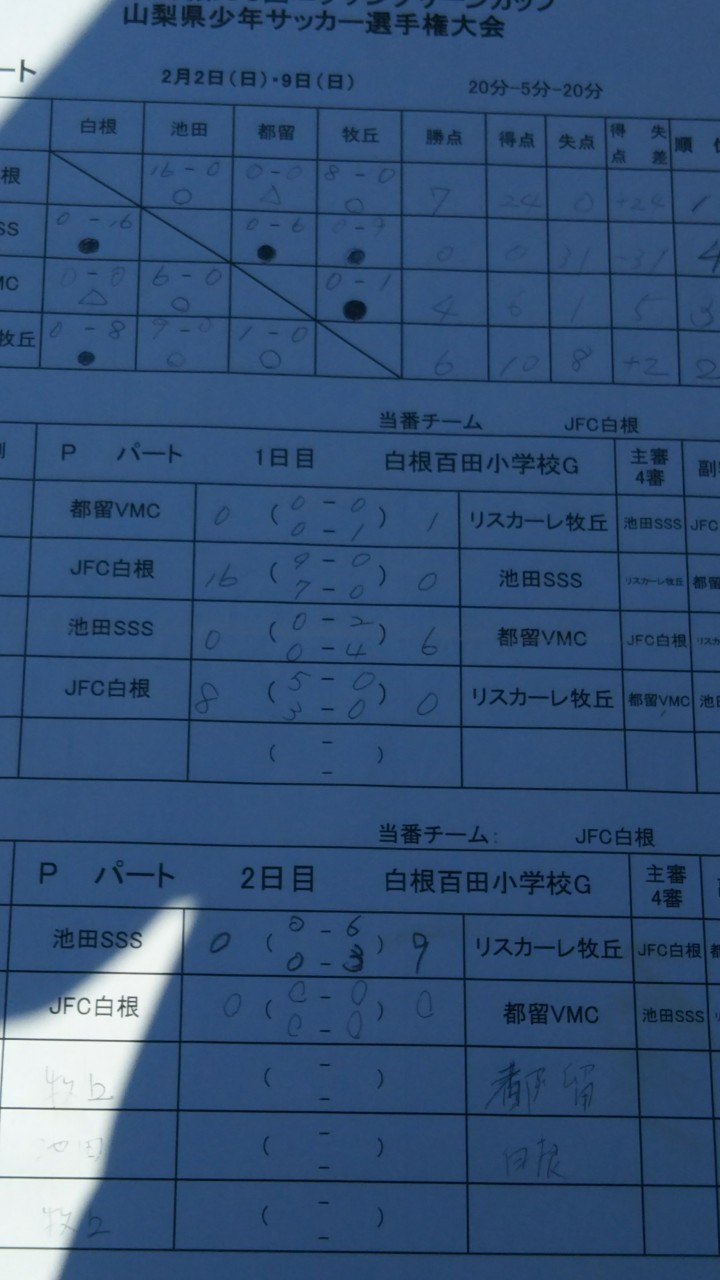 山梨県少年サッカー選手権大会
ート 2月2日(日)・9日(日) 20分-5分-20分
白根 池田 都留 牧丘 勝点 得点 失点 得点 失差 順
根 16-0 0-0 8-0 7 24 0 +24 1
○ △ ○
SS 0-16 0-6 0 0 31 -31 4
● ● ●
MC 6-0 0-1 4 6 1 5 3
△ ○ ●
牧丘 0-8 1-0 6 10 8 +2 2
● ○ ○
当番チーム JFC白根
P パート 1日目 白根百田小学校G 主審 4審
都留VMC 0 (0-0 0-1) 1 リスカーレ牧丘 池田SSS JFC
JFC白根 16 (9-0 7-0) 0 池田SSS リスカーレ牧丘 都留
池田SSS 0 (0-2 0-4) 6 都留VMC JFC白根 リスカ
JFC白根 8 (5-0 3-0) 0 リスカーレ牧丘 都留VMC 池
( - - )
当番チーム: JFC白根
P パート 2日目 白根百田小学校G 主審 4審
池田SSS 0 (0-6 0-3) 9 リスカーレ牧丘 JFC白根
JFC白根 0 (0-0 0-0) 0 都留VMC 池田SSS
牧丘 ( - - ) 都留
池田 ( - - ) 白根
牧丘 ( - - )